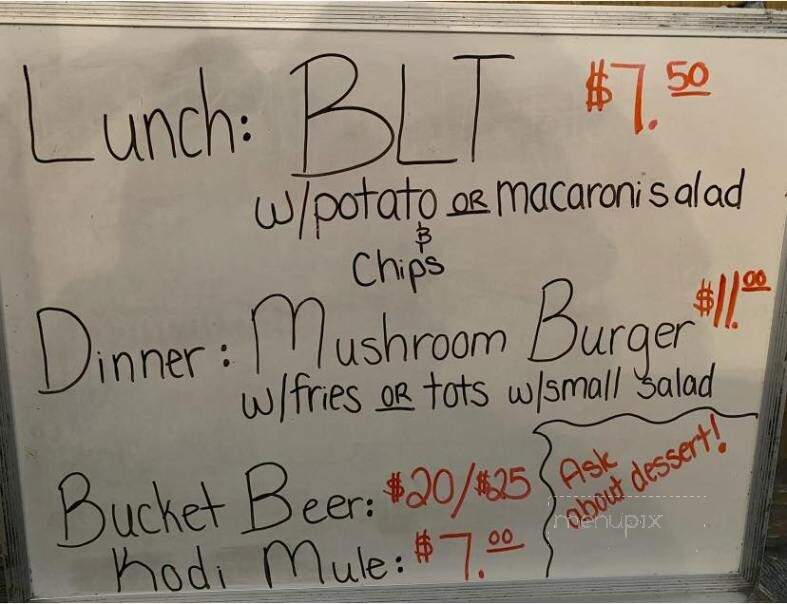 Lunch: BLT $7.50
w/potato OR macaroni salad
&
Chips
Dinner: Mushroom Burger $11.00
w/fries OR tots w/small salad
Bucket Beer: $20/$25
Kodi Mule: $7.00
Ask
about dessert!
menupix